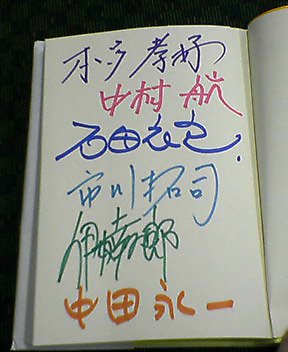 本多孝好
中村航
石田衣良
市川拓司
伊坂幸太郎
中田永一